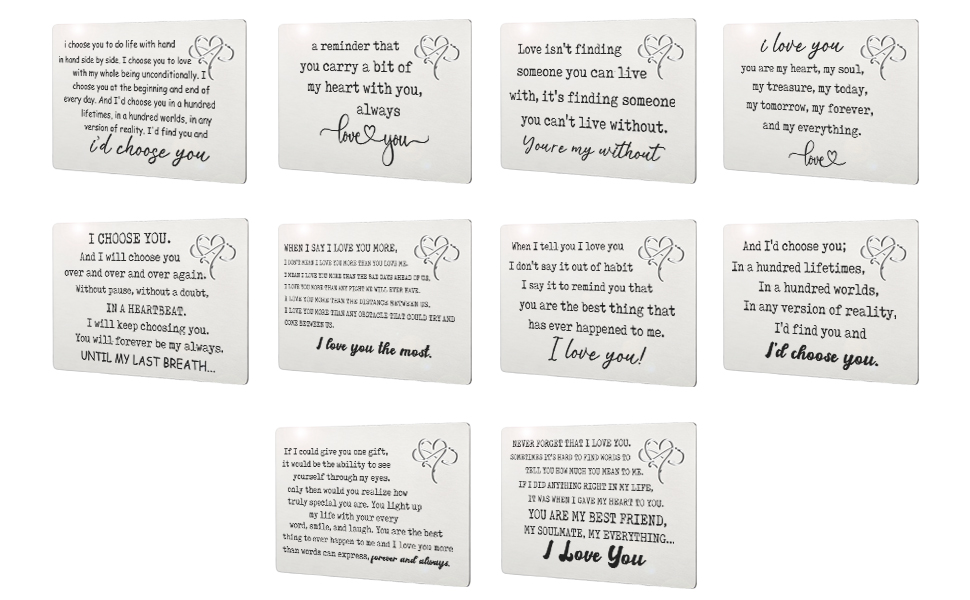 i choose you to do life with hand
in hand side by side. I choose you to love
with my whole being unconditionally. I
choose you at the beginning and end of
every day. And I'd choose you in a hundred
lifetimes, in a hundred worlds, in any
version of reality. I'd find you and
i'd choose you
a reminder that
you carry a bit of
my heart with you,
always
love you
Love isn't finding
someone you can live
with, it's finding someone
you can't live without.
Youre my without
i love you
you are my heart, my soul,
my treasure, my today,
my tomorrow, my forever,
and my everything.
love
I CHOOSE YOU.
And I will choose you
over and over and over again.
Without pause, without a doubt,
IN A HEARTBEAT.
I will keep choosing you.
You will forever be my always.
UNTIL MY LAST BREATH...
WHEN I SAY I LOVE YOU MORE,
I DON'T MEAN I LOVE YOU MORE THAN YOU LOVE ME.
I MEAN I LOVE YOU MORE THAN THE BAD DAYS AHEAD OF US,
I LOVE YOU MORE THAN ANY FIGHT WE WILL EVER HAVE.
I LOVE YOU MORE THAN THE DISTANCE BETWEEN US,
I LOVE YOU MORE THAN ANY OBSTACLE THAT COULD TRY AND
COME BETWEEN US.
I love you the most.
When I tell you I love you
I don't say it out of habit
I say it to remind you that
you are the best thing that
has ever happened to me.
I love you!
And I'd choose you;
In a hundred lifetimes,
In a hundred worlds,
In any version of reality,
I'd find you and
I'd choose you.
If I could give you one gift,
it would be the ability to see
yourself through my eyes.
only then would you realize how
truly special you are. You light up
my life with your every
word, smile, and laugh. You are the best
thing to ever happen to me and I love you more
than words can express, forever and always.
NEVER FORGET THAT I LOVE YOU.
SOMETIMES IT'S HARD TO FIND WORDS TO
TELL YOU HOW MUCH YOU MEAN TO ME.
IF I DID ANYTHING RIGHT IN MY LIFE,
IT WAS WHEN I GAVE MY HEART TO YOU.
YOU ARE MY BEST FRIEND,
MY SOULMATE, MY EVERYTHING...
I Love You